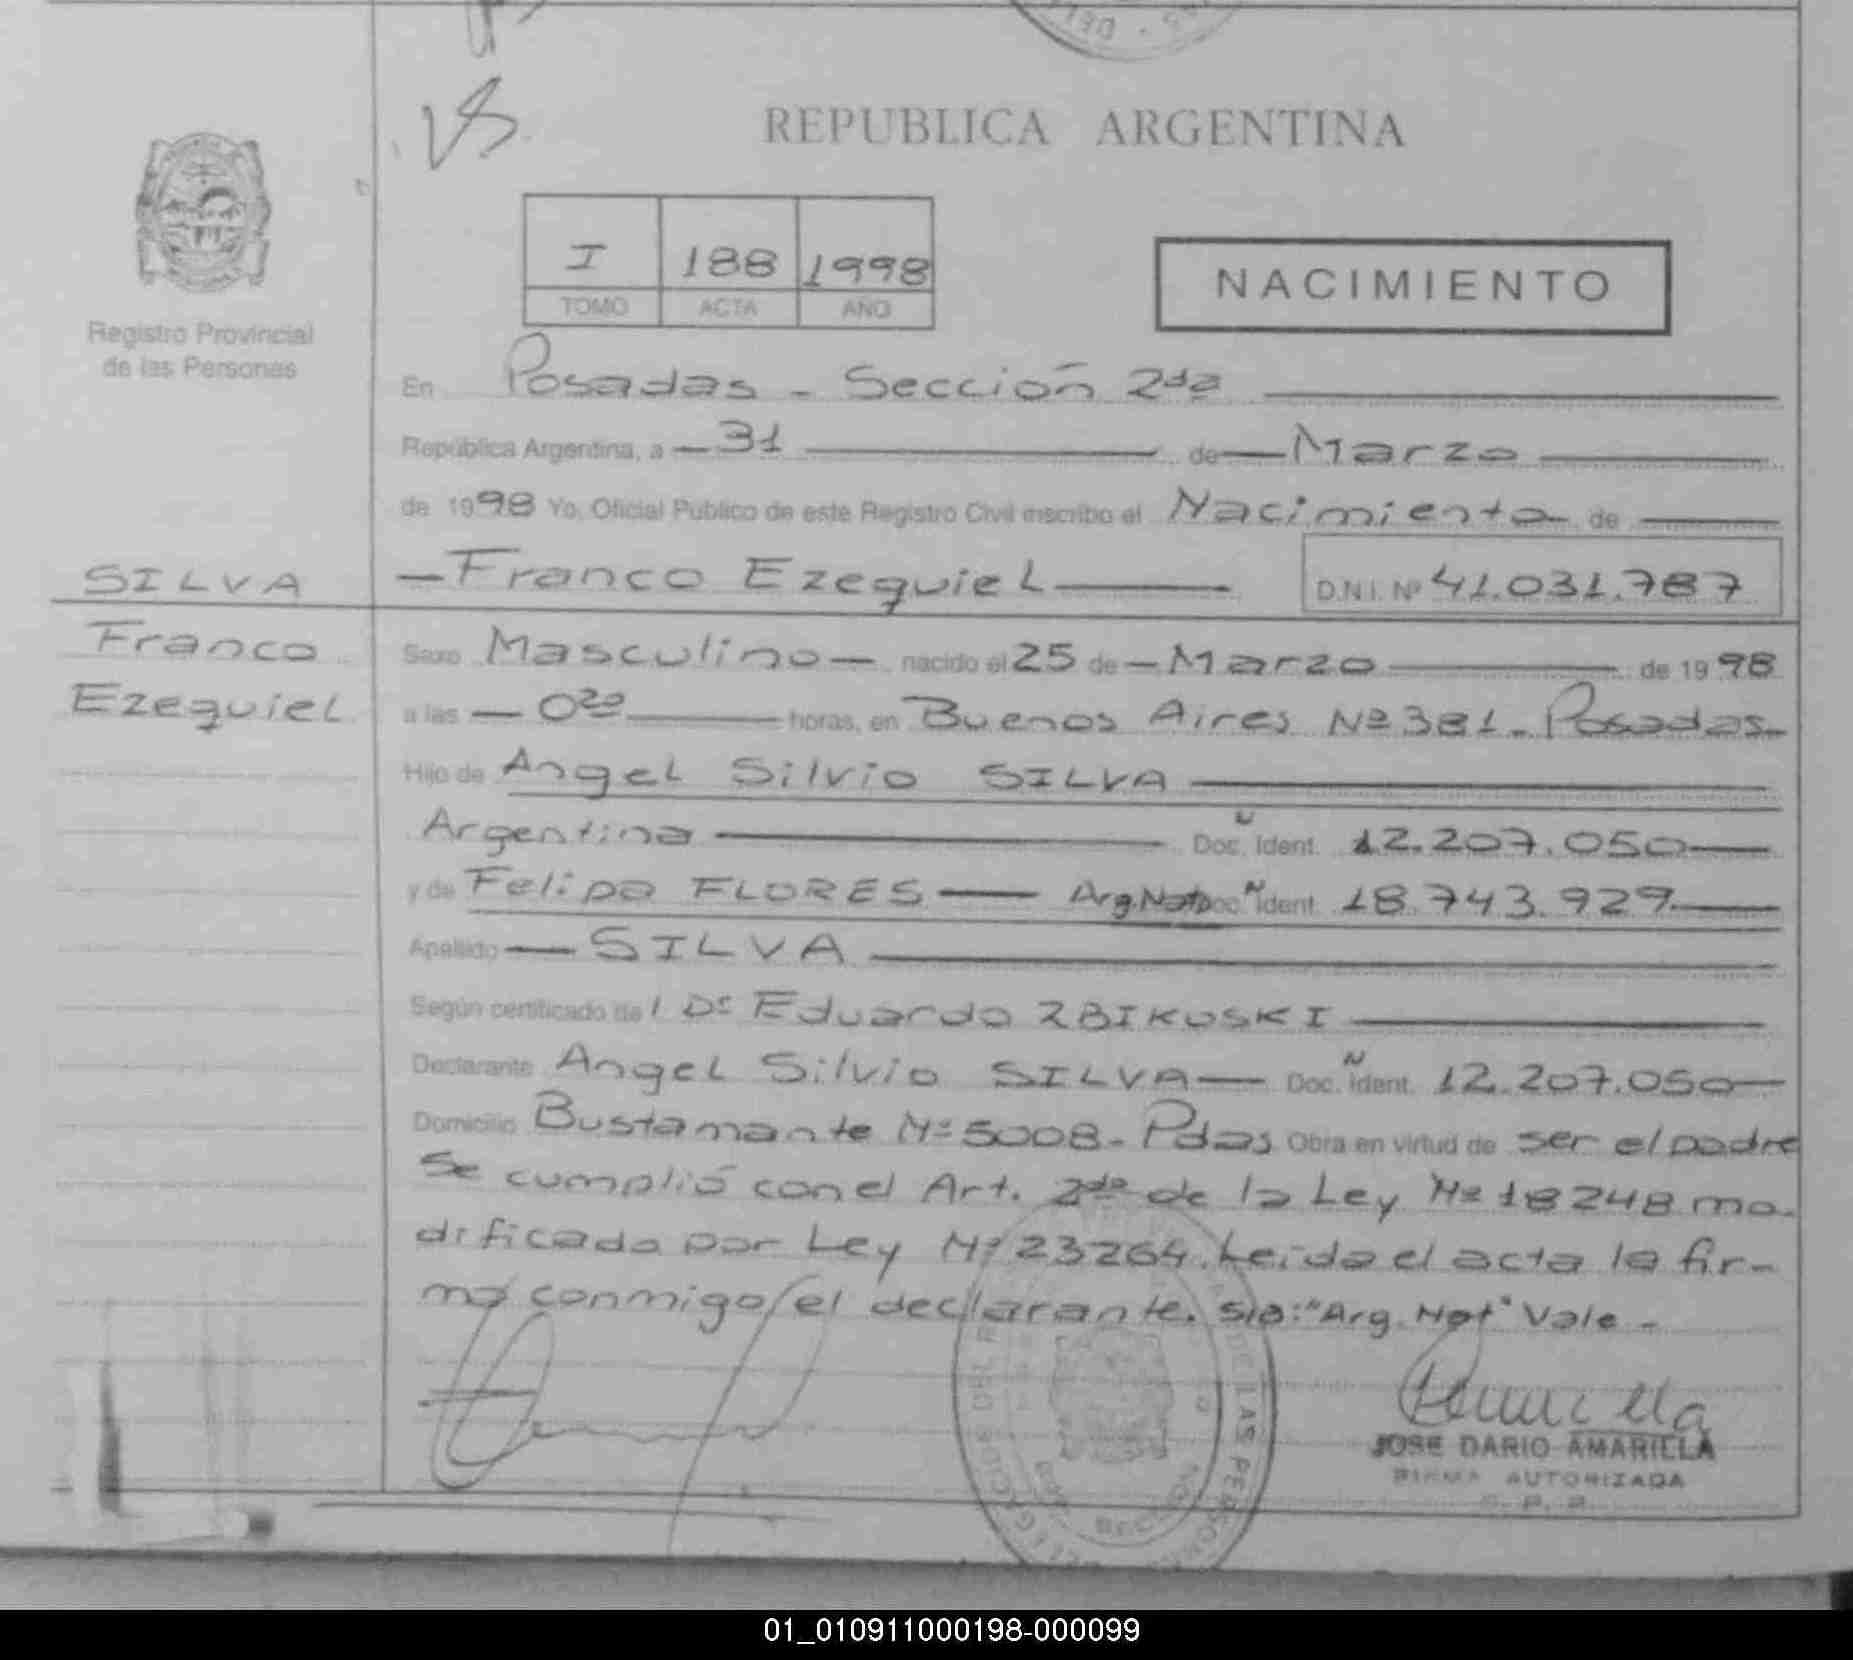 REPUBLICA ARGENTINA
I 188 1998
TOMO ACTA AÑO
NACIMIENTO
Registro Provincial
de las Personas
En Posadas - Sección 2da
República Argentina, a 31 de Marzo
de 1998 Yo, Oficial Publico de este Registro Civil inscribo el Nacimiento de
SILVA
Franco
Ezequiel
Franco Ezequiel D.N.I. Nº 41.031.787
Sexo Masculino nacido el 25 de Marzo de 1998
a las 020 horas, en Buenos Aires Nº 381 - Posadas
Hijo de Angel Silvio SILVA
Argentina Doc. N Ident. 12.207.050
y de Felipa FLORES Arg. Nat Doc. N Ident. 18.743.929
Apellido SILVA
Según certificado de l Dr Eduardo ZBIKOSKI
Declarante Angel Silvio SILVA Doc. N Ident. 12.207.050
Domicilio Bustamante Nº 5008 - Pdas Obra en virtud de ser el padre
Se cumplió con el Art. 2do de la Ley Nº 18248 mo-
dificado por Ley Nº 23264. Leida el acta la fir-
ma conmigo el declarante. S/a: "Arg. Nat" Vale -
JOSE DARIO AMARILLA
FIRMA AUTORIZADA
01_010911000198-000099